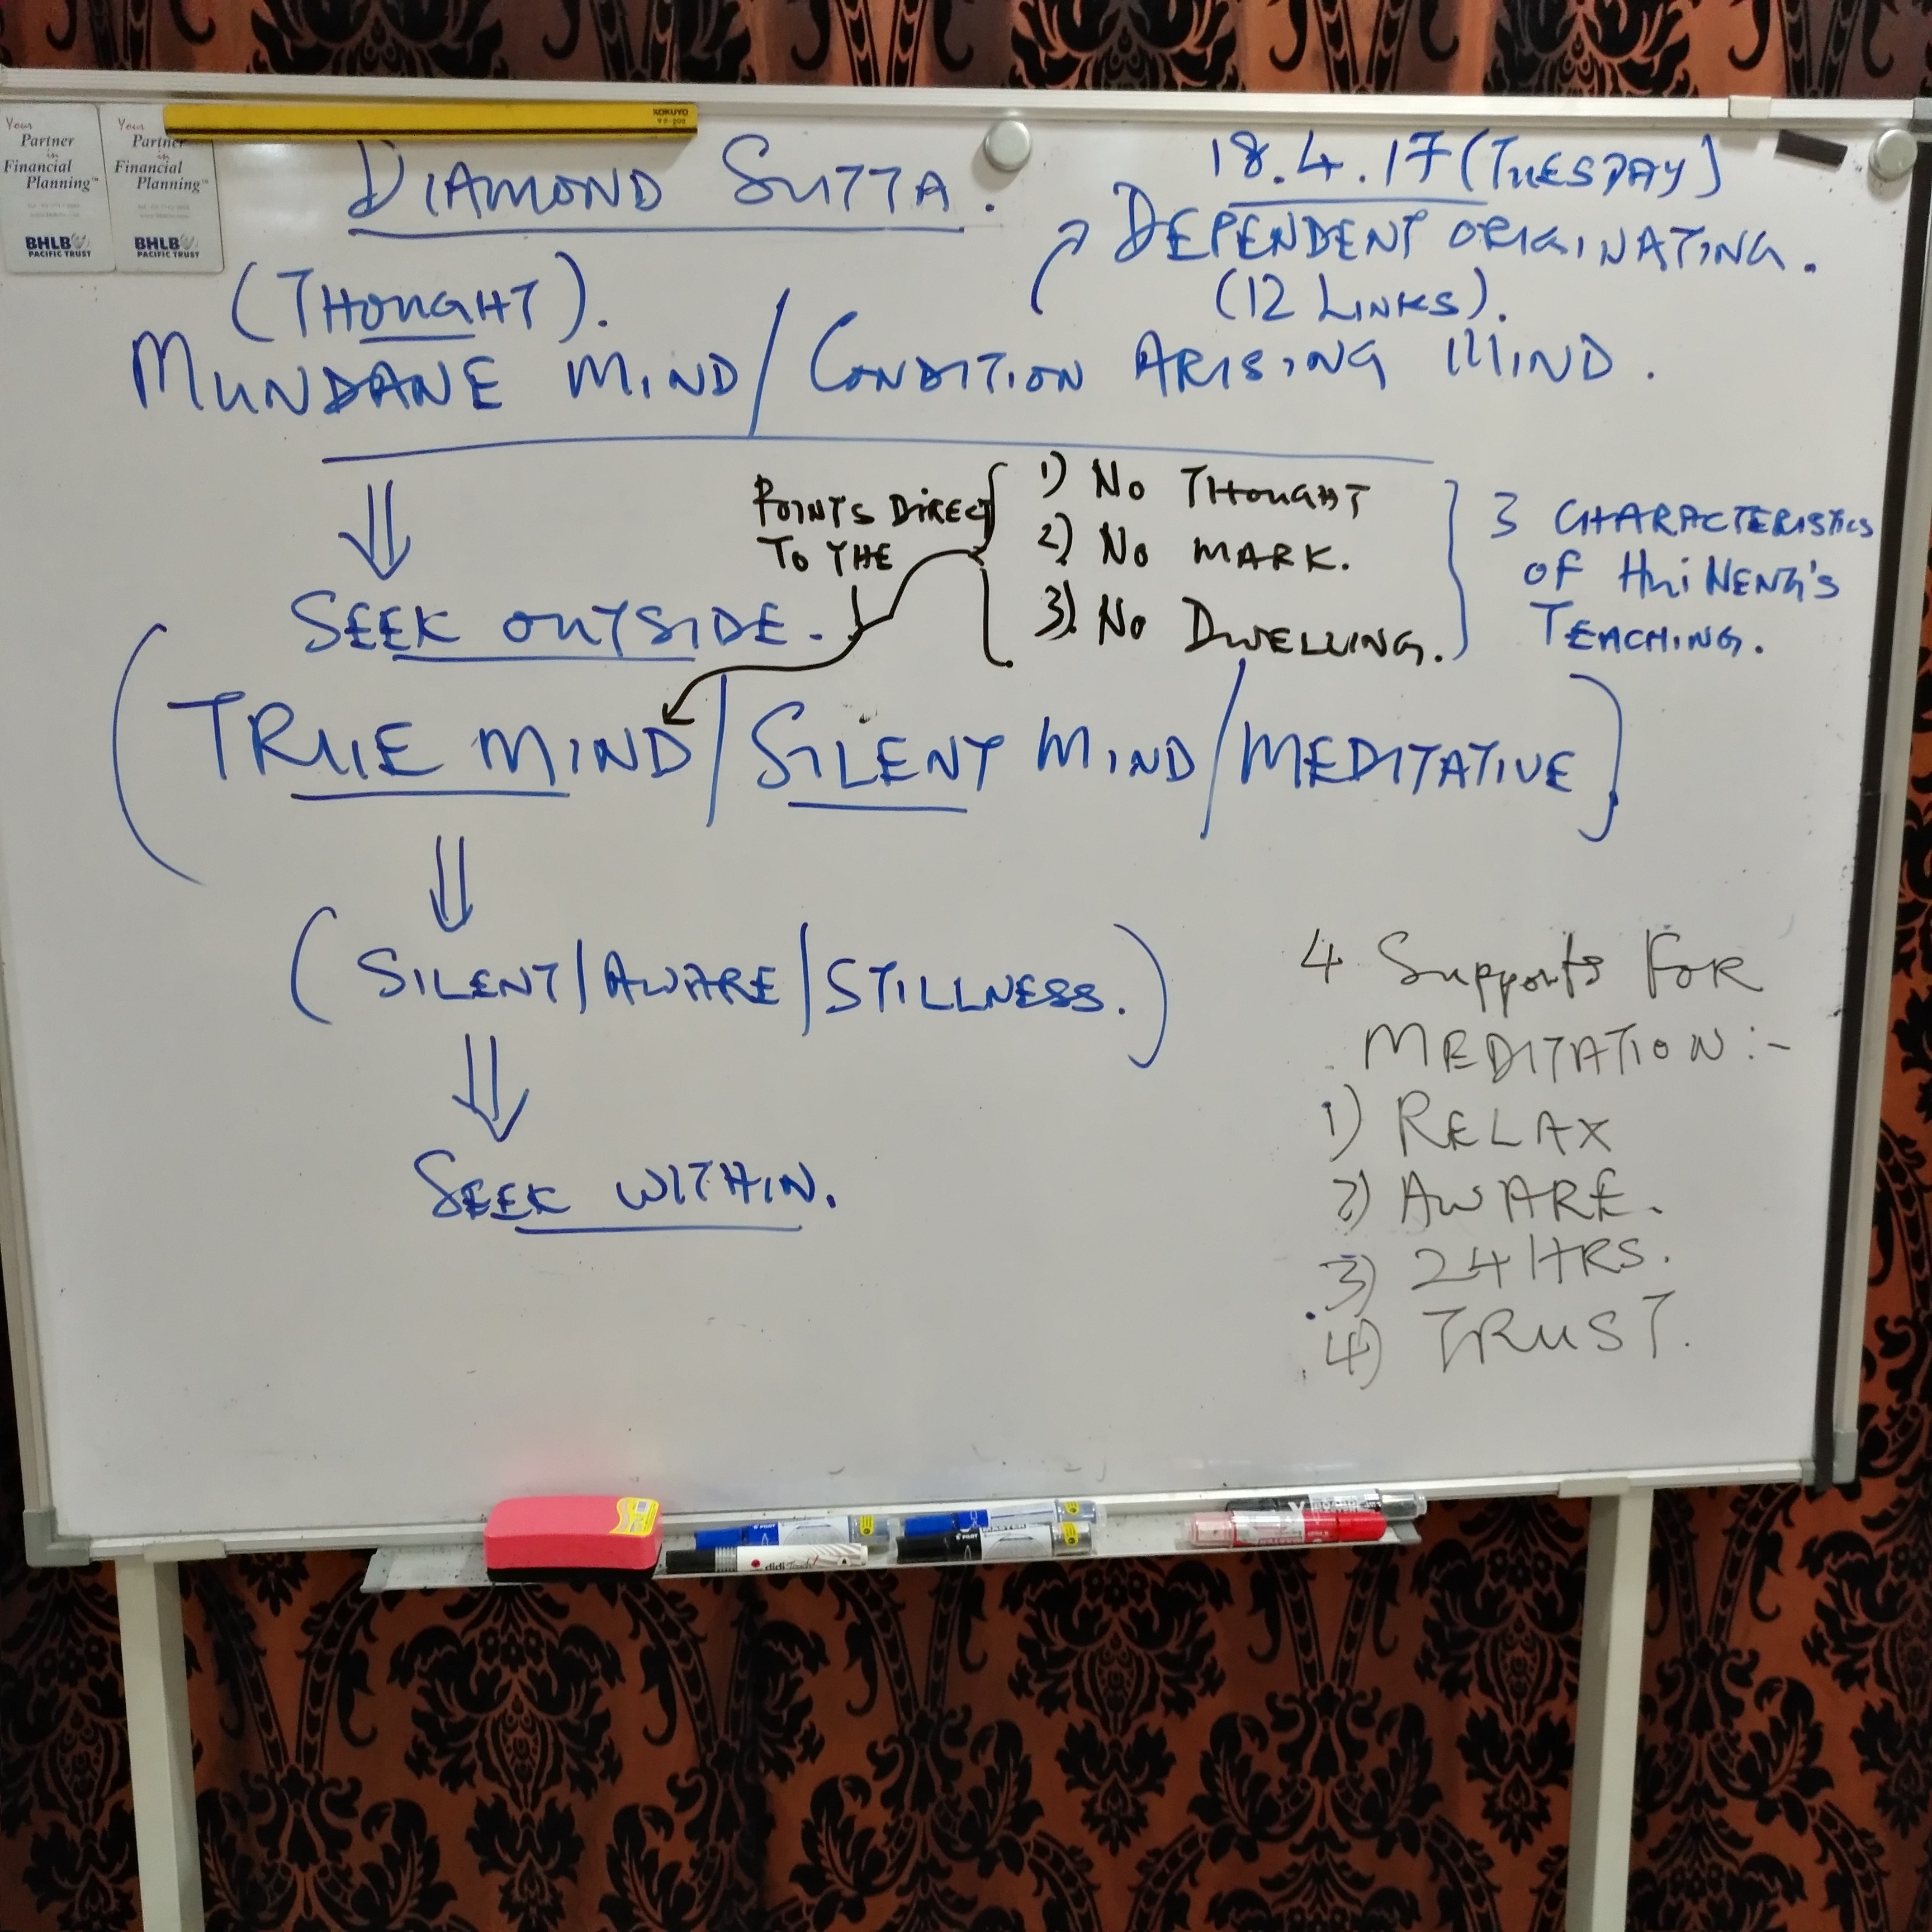 Your
Partner
in
Financial
Planning™
BHLB
PACIFIC TRUST
Your
Partner
in
Financial
Planning™
BHLB
PACIFIC TRUST
KOKUYO
DIAMOND SUTTA.
18.4.17 (TUESDAY)
DEPENDENT ORIGINATING.
(12 LINKS).
(THOUGHT).
MUNDANE MIND / CONDITION ARISING MIND.
POINTS DIRECT
TO THE
1) NO THOUGHT
2) NO MARK.
3) NO DWELLING.
3 CHARACTERISTICS
OF HUI NENG'S
TEACHING.
SEEK OUTSIDE.
(TRUE MIND / SILENT MIND / MEDITATIVE)
(SILENT / AWARE / STILLNESS.)
SEEK WITHIN.
4 Supports FOR
MEDITATION :-
1) RELAX
2) AWARE.
3) 24 HRS.
4) TRUST.
PILOT
PILOT